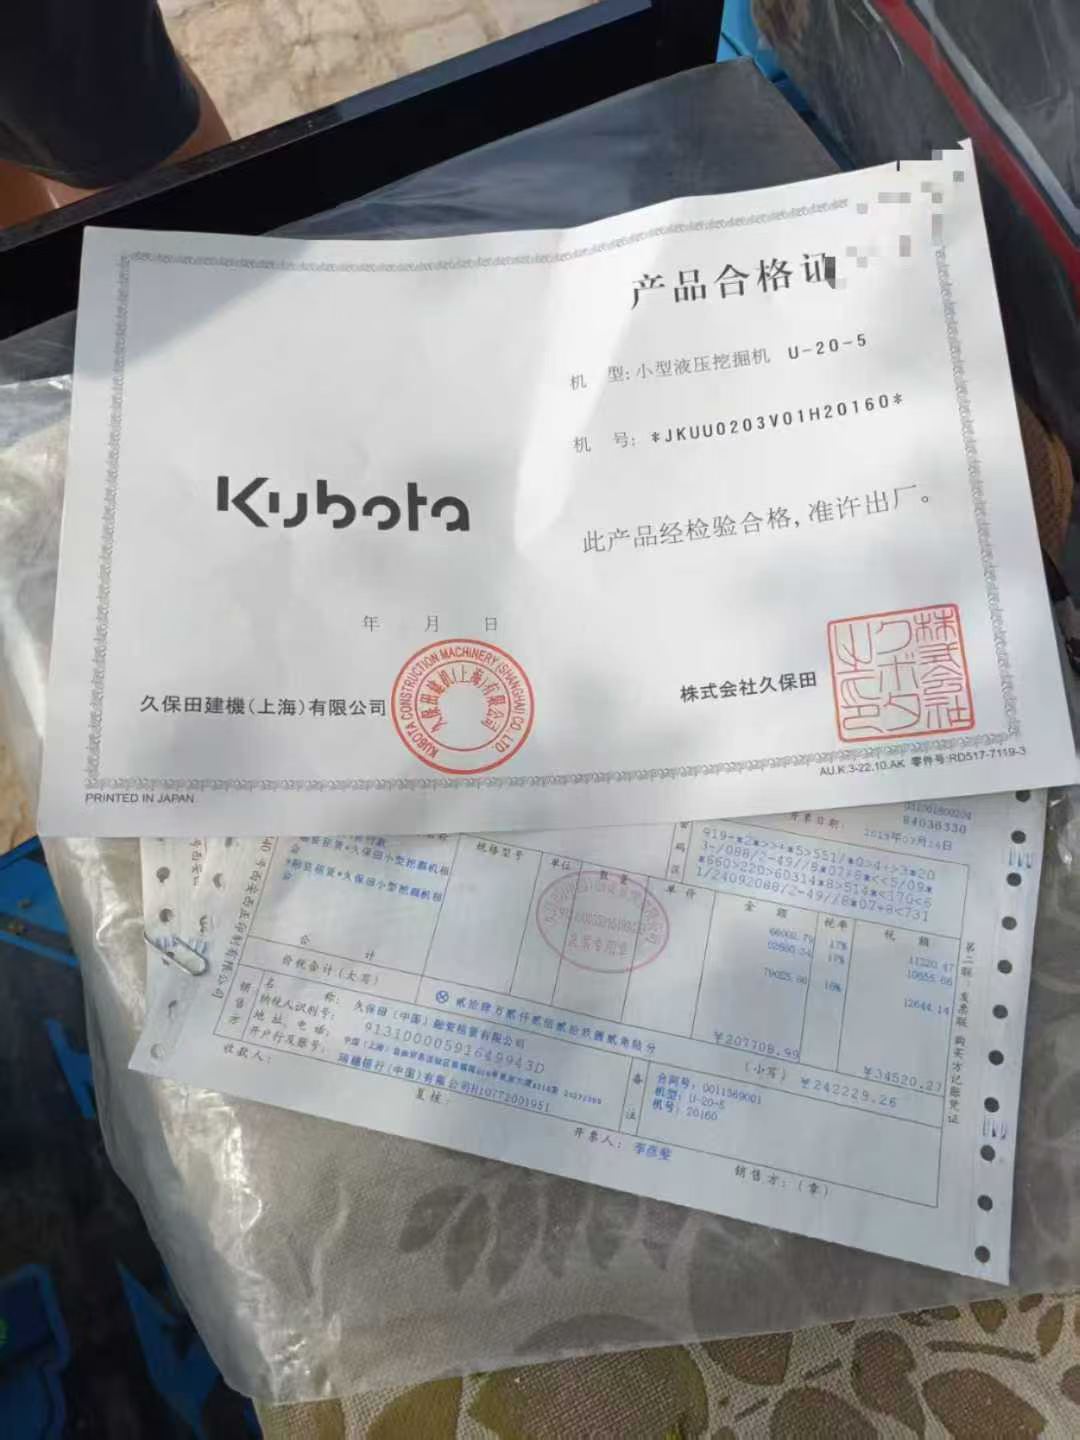 产品合格证
机 型: 小型液压挖掘机 U-20-5
机 号: *JKUU0203V01H20160*
Kubota
此产品经检验合格,准许出厂。
年 月 日
久保田建機(上海)有限公司
KUBOTA CONSTRUCTION MACHINERY (SHANGHAI) CO., LTD.
久保田建机(上海)有限公司
株式会社久保田
株式会社クボタ之印
AU.K.3-22.10.AK 零件号:RD517-7119-3
PRINTED IN JAPAN
84036330
开票日期:
规格型号
单位
数量
单价
金 额
税率
税 额
*融资租赁*久保田小型挖掘机租
17%
17%
16%
11320.47
12644.14
合 计
￥207708.99
￥34520.27
价税合计(大写)
贰拾肆万贰仟贰佰贰拾玖圆贰角陆分
(小写) ￥242229.26
销售方
名 称: 久保田(中国)融资租赁有限公司
纳税人识别号: 91310000591649943D
地址、电话:
开户行及账号: 瑞穗银行(中国)有限公司H10772001951
备注
合同号: 0011569001
机型: U-20-5
机号: 20160
收款人:
复核:
开票人:
销售方:(章)
第二联:发票联 购买方记账凭证
发票专用章